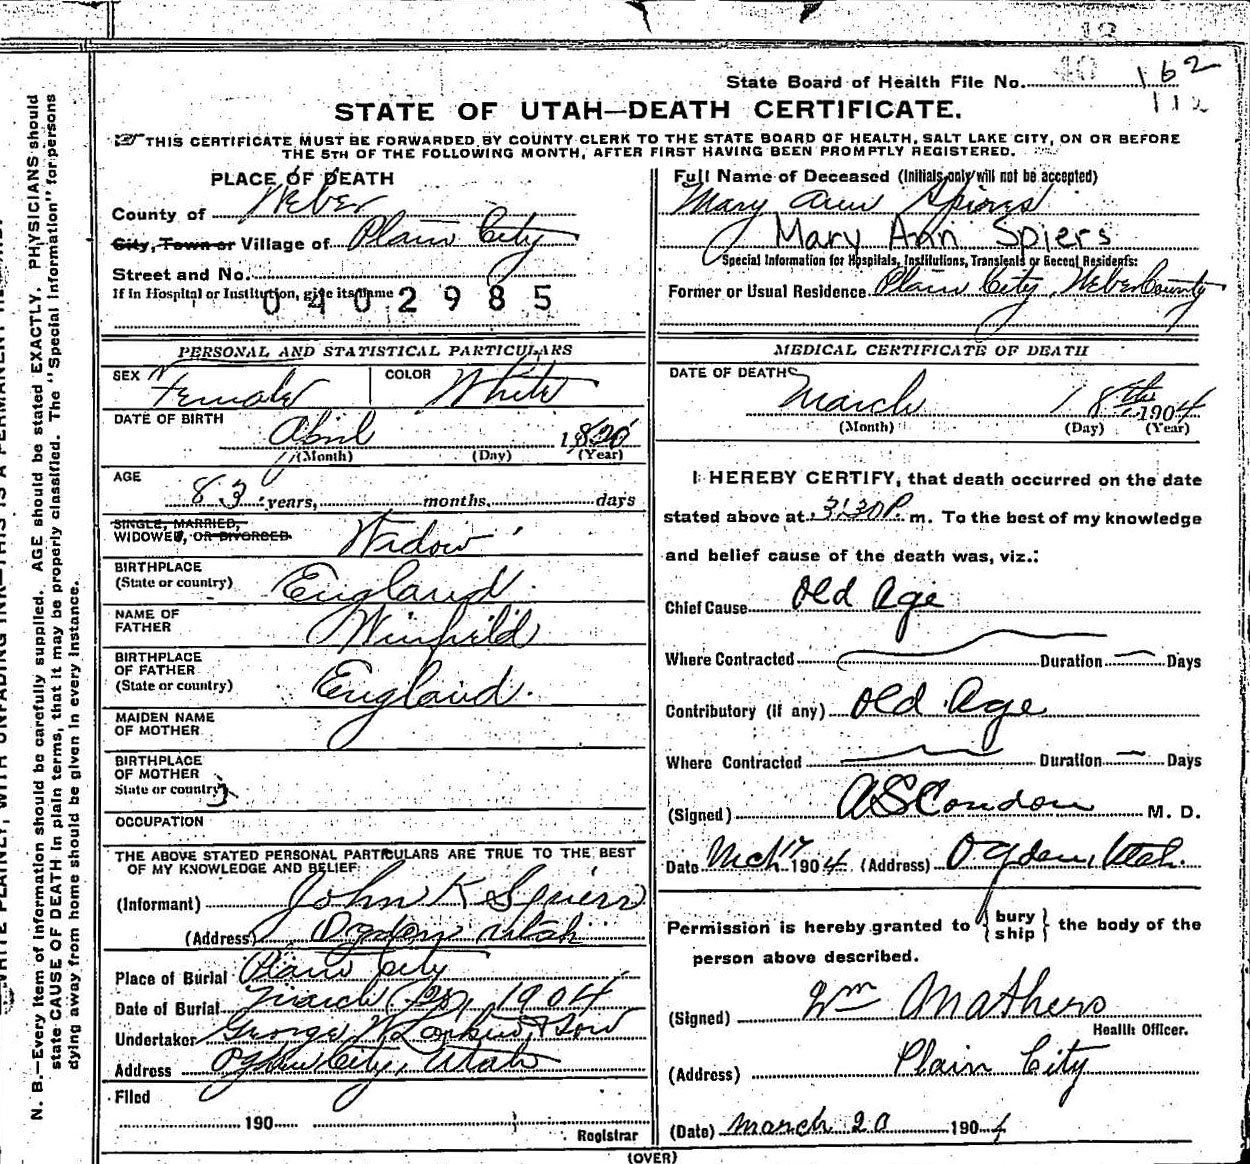 State Board of Health File No. 162
112
STATE OF UTAH—DEATH CERTIFICATE.
THIS CERTIFICATE MUST BE FORWARDED BY COUNTY CLERK TO THE STATE BOARD OF HEALTH, SALT LAKE CITY, ON OR BEFORE
THE 5TH OF THE FOLLOWING MONTH, AFTER FIRST HAVING BEEN PROMPTLY REGISTERED.
PLACE OF DEATH
County of Weber
City, Town or Village of Plain City
Street and No.
If in Hospital or Institution, give its name
0402985
Full Name of Deceased (Initials only will not be accepted)
Mary Ann Spiers
Mary Ann Spiers
Special Information for Hospitals, Institutions, Transients or Recent Residents:
Former or Usual Residence Plain City, Weber County
PERSONAL AND STATISTICAL PARTICULARS
SEX Female COLOR White
DATE OF BIRTH
April 1820
(Month) (Day) (Year)
AGE
83 years, months, days
SINGLE, MARRIED,
WIDOWED, OR DIVORCED Widow
BIRTHPLACE
(State or country) England
NAME OF
FATHER Winfild
BIRTHPLACE
OF FATHER
(State or country) England.
MAIDEN NAME
OF MOTHER
BIRTHPLACE
OF MOTHER
State or country)
OCCUPATION
THE ABOVE STATED PERSONAL PARTICULARS ARE TRUE TO THE BEST
OF MY KNOWLEDGE AND BELIEF
(Informant) John K Spiers
(Address) Ogden Utah
Place of Burial Plain City
Date of Burial March 1904
Undertaker George W Larkin & Son
Address Ogden City, Utah
Filed
190
Registrar
MEDICAL CERTIFICATE OF DEATH
DATE OF DEATH
March 18th 1904
(Month) (Day) (Year)
I HEREBY CERTIFY, that death occurred on the date
stated above at 3:30 P. m. To the best of my knowledge
and belief cause of the death was, viz.:
Chief Cause Old Age
Where Contracted Duration — Days
Contributory (if any) Old Age
Where Contracted Duration — Days
(Signed) A S Condon M. D.
Date Mch 1904 (Address) Ogden, Utah.
Permission is hereby granted to { bury
ship } the body of the
person above described.
(Signed) Wm Mathers
Health Officer.
(Address) Plain City
(Date) March 20 1904
(OVER)
N. B.—Every item of information should be carefully supplied. AGE should be stated EXACTLY. PHYSICIANS should
state CAUSE OF DEATH in plain terms, that it may be properly classified. The "Special Information" for persons
dying away from home should be given in every instance.